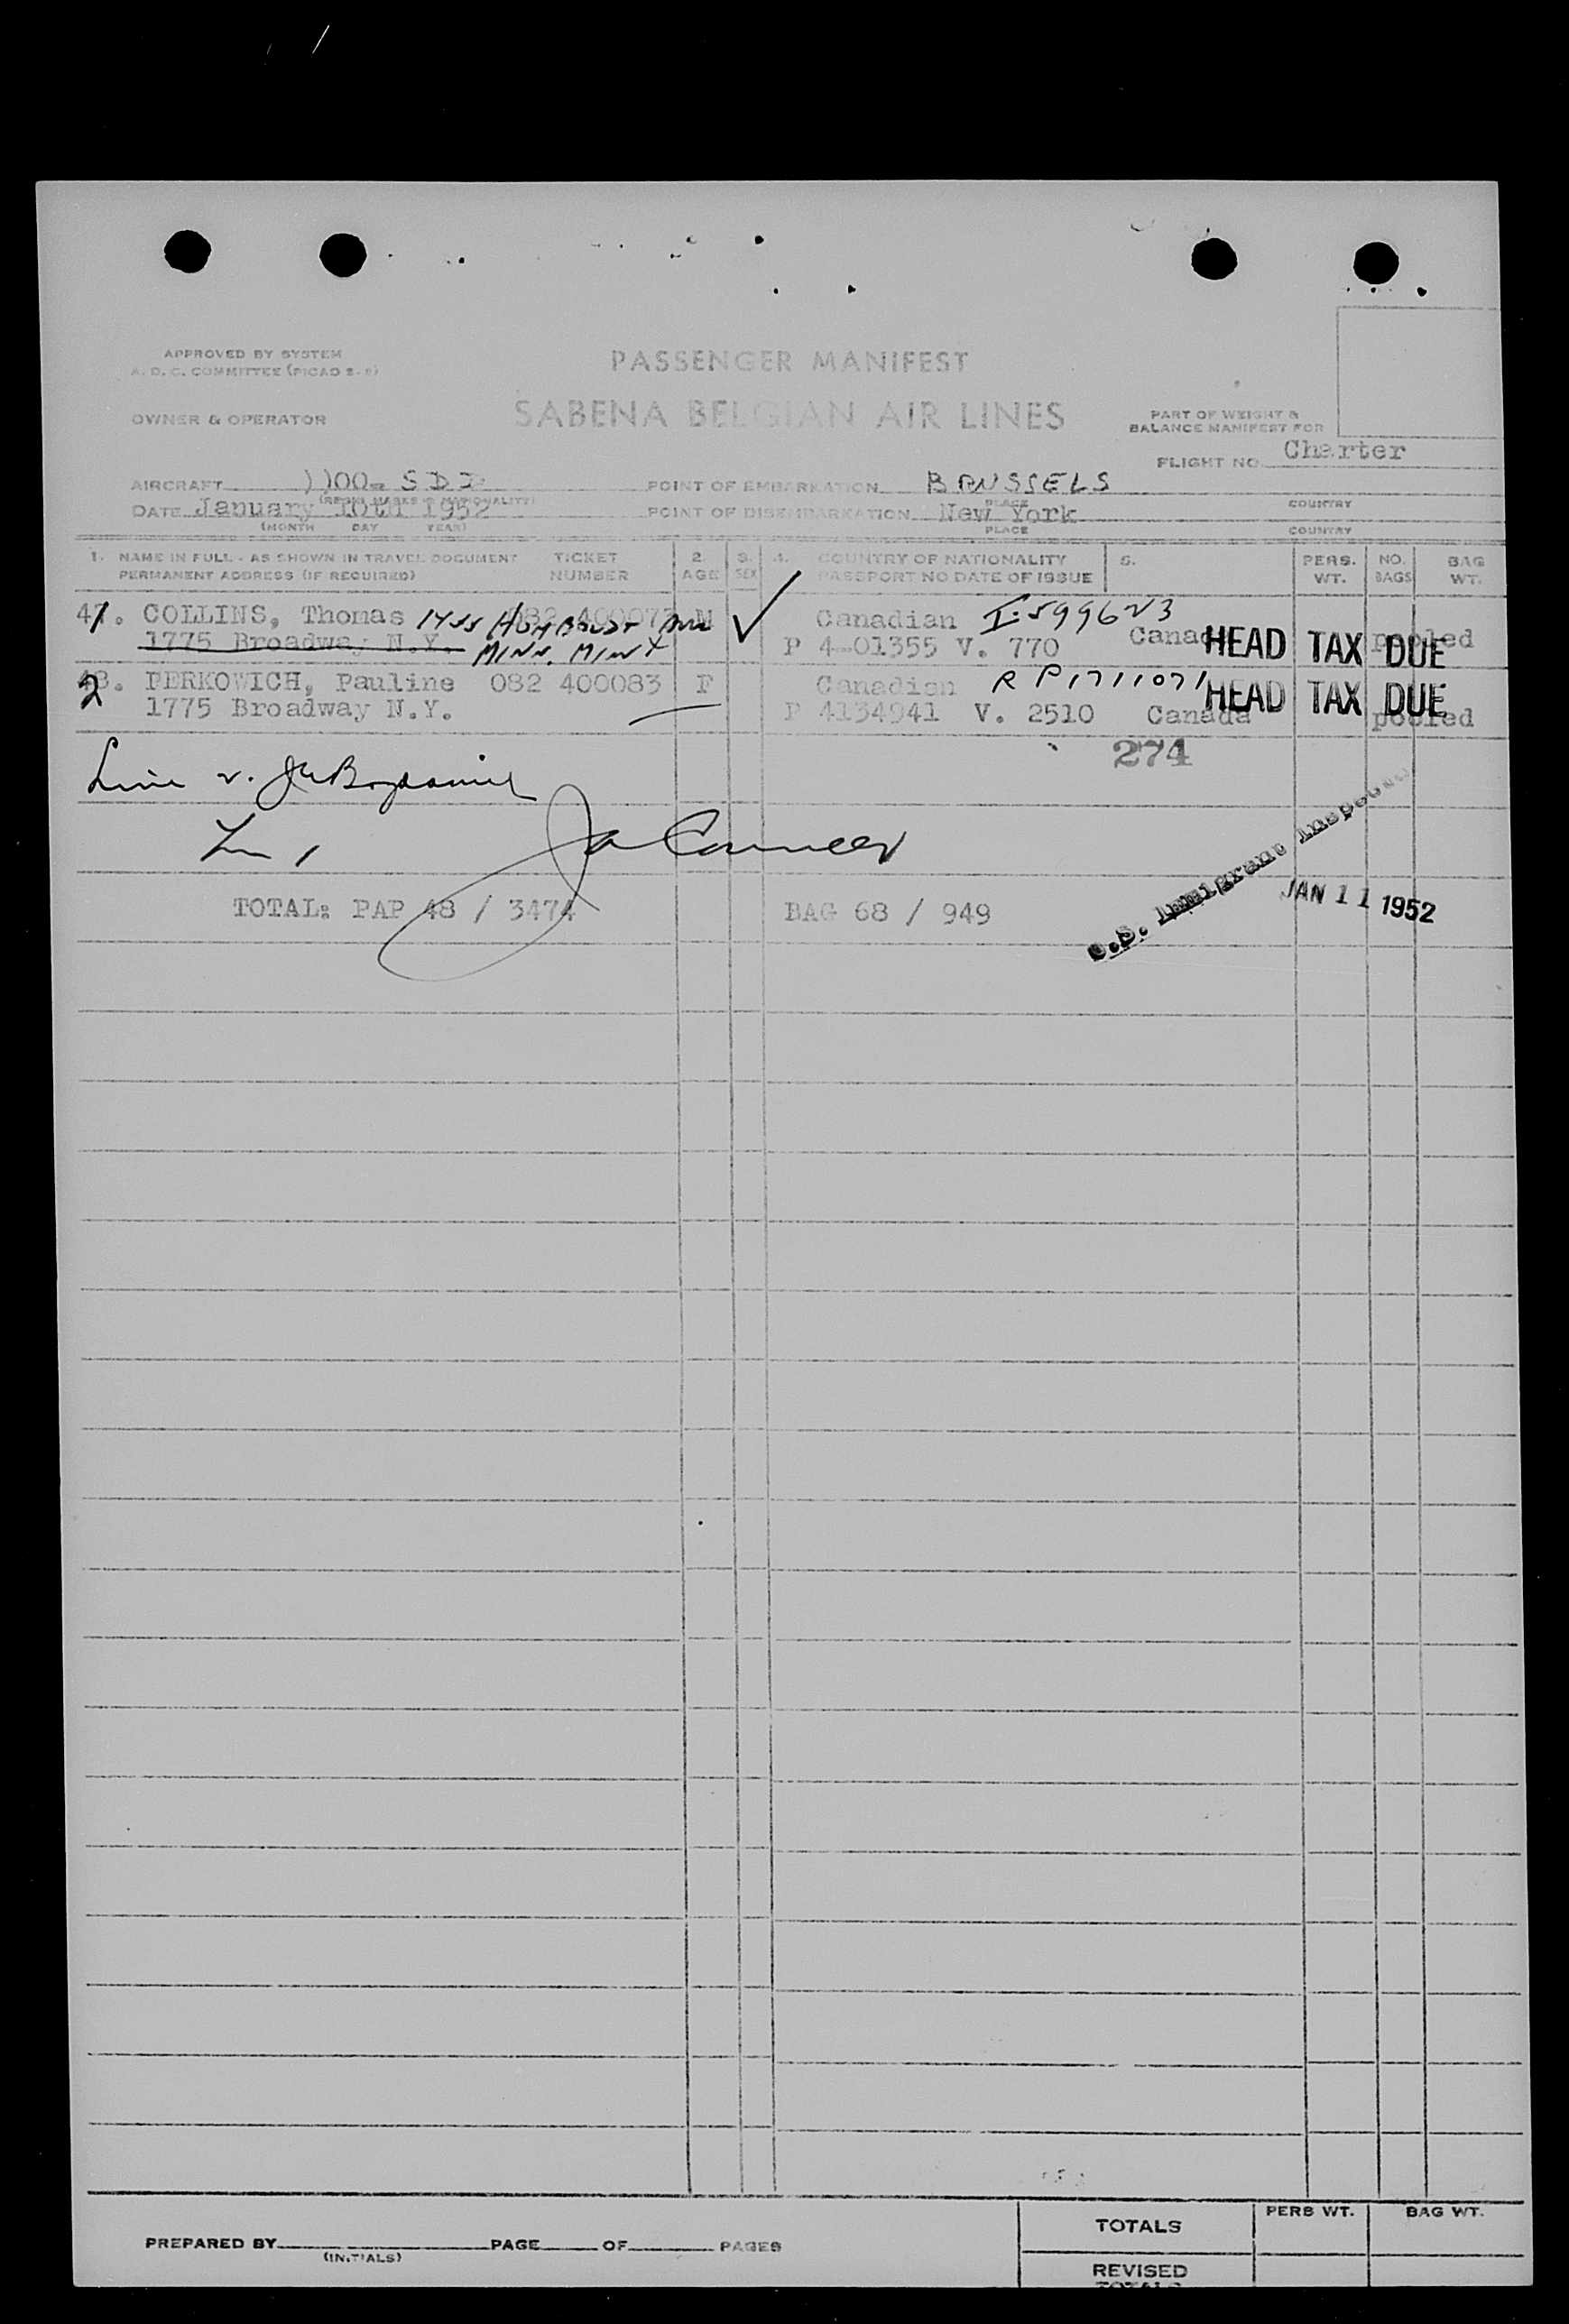 APPROVED BY SYSTEM
A. D. C. COMMITTEE (PICAO
PASSENGER MANIFEST
SABENA BELGIAN AIR LINES
OWNER & OPERATOR
PART OF WEIGHT &
BALANCE MANIFEST FOR
FLIGHT NO. Charter
AIRCRAFT SDD
POINT OF EMBARKATION BRUSSELS
(REGN. MARKS & NATIONALITY)
PLACE COUNTRY
DATE January 10th 1952
POINT OF DISEMBARKATION New York
(MONTH DAY YEAR)
PLACE COUNTRY
1. NAME IN FULL - AS SHOWN IN TRAVEL DOCUMENT TICKET 2. 3. 4. COUNTRY OF NATIONALITY 5. PERS. NO. BAG
PERMANENT ADDRESS (IF REQUIRED) NUMBER AGE SEX PASSPORT NO DATE OF ISSUE WT. BAGS WT.
COLLINS, Thomas 1455 HUMBOLDT AVE 082 400073 M Canadian I-599623
1775 Broadway N.Y. MINN. MINN P 4-01355 V. 770 Canada HEAD TAX DUE pooled
2 PERKOWICH, Pauline 082 400083 F Canadian R P1711071 HEAD TAX DUE
1775 Broadway N.Y. P 4134941 V. 2510 Canada pooled
274
TOTAL: PAP 48 / 3474 BAG 68 / 949
U.S. Immigrant Inspector
JAN 11 1952
PREPARED BY PAGE OF PAGES
(INITIALS)
TOTALS PERS WT. BAG WT.
REVISED
TOTALS